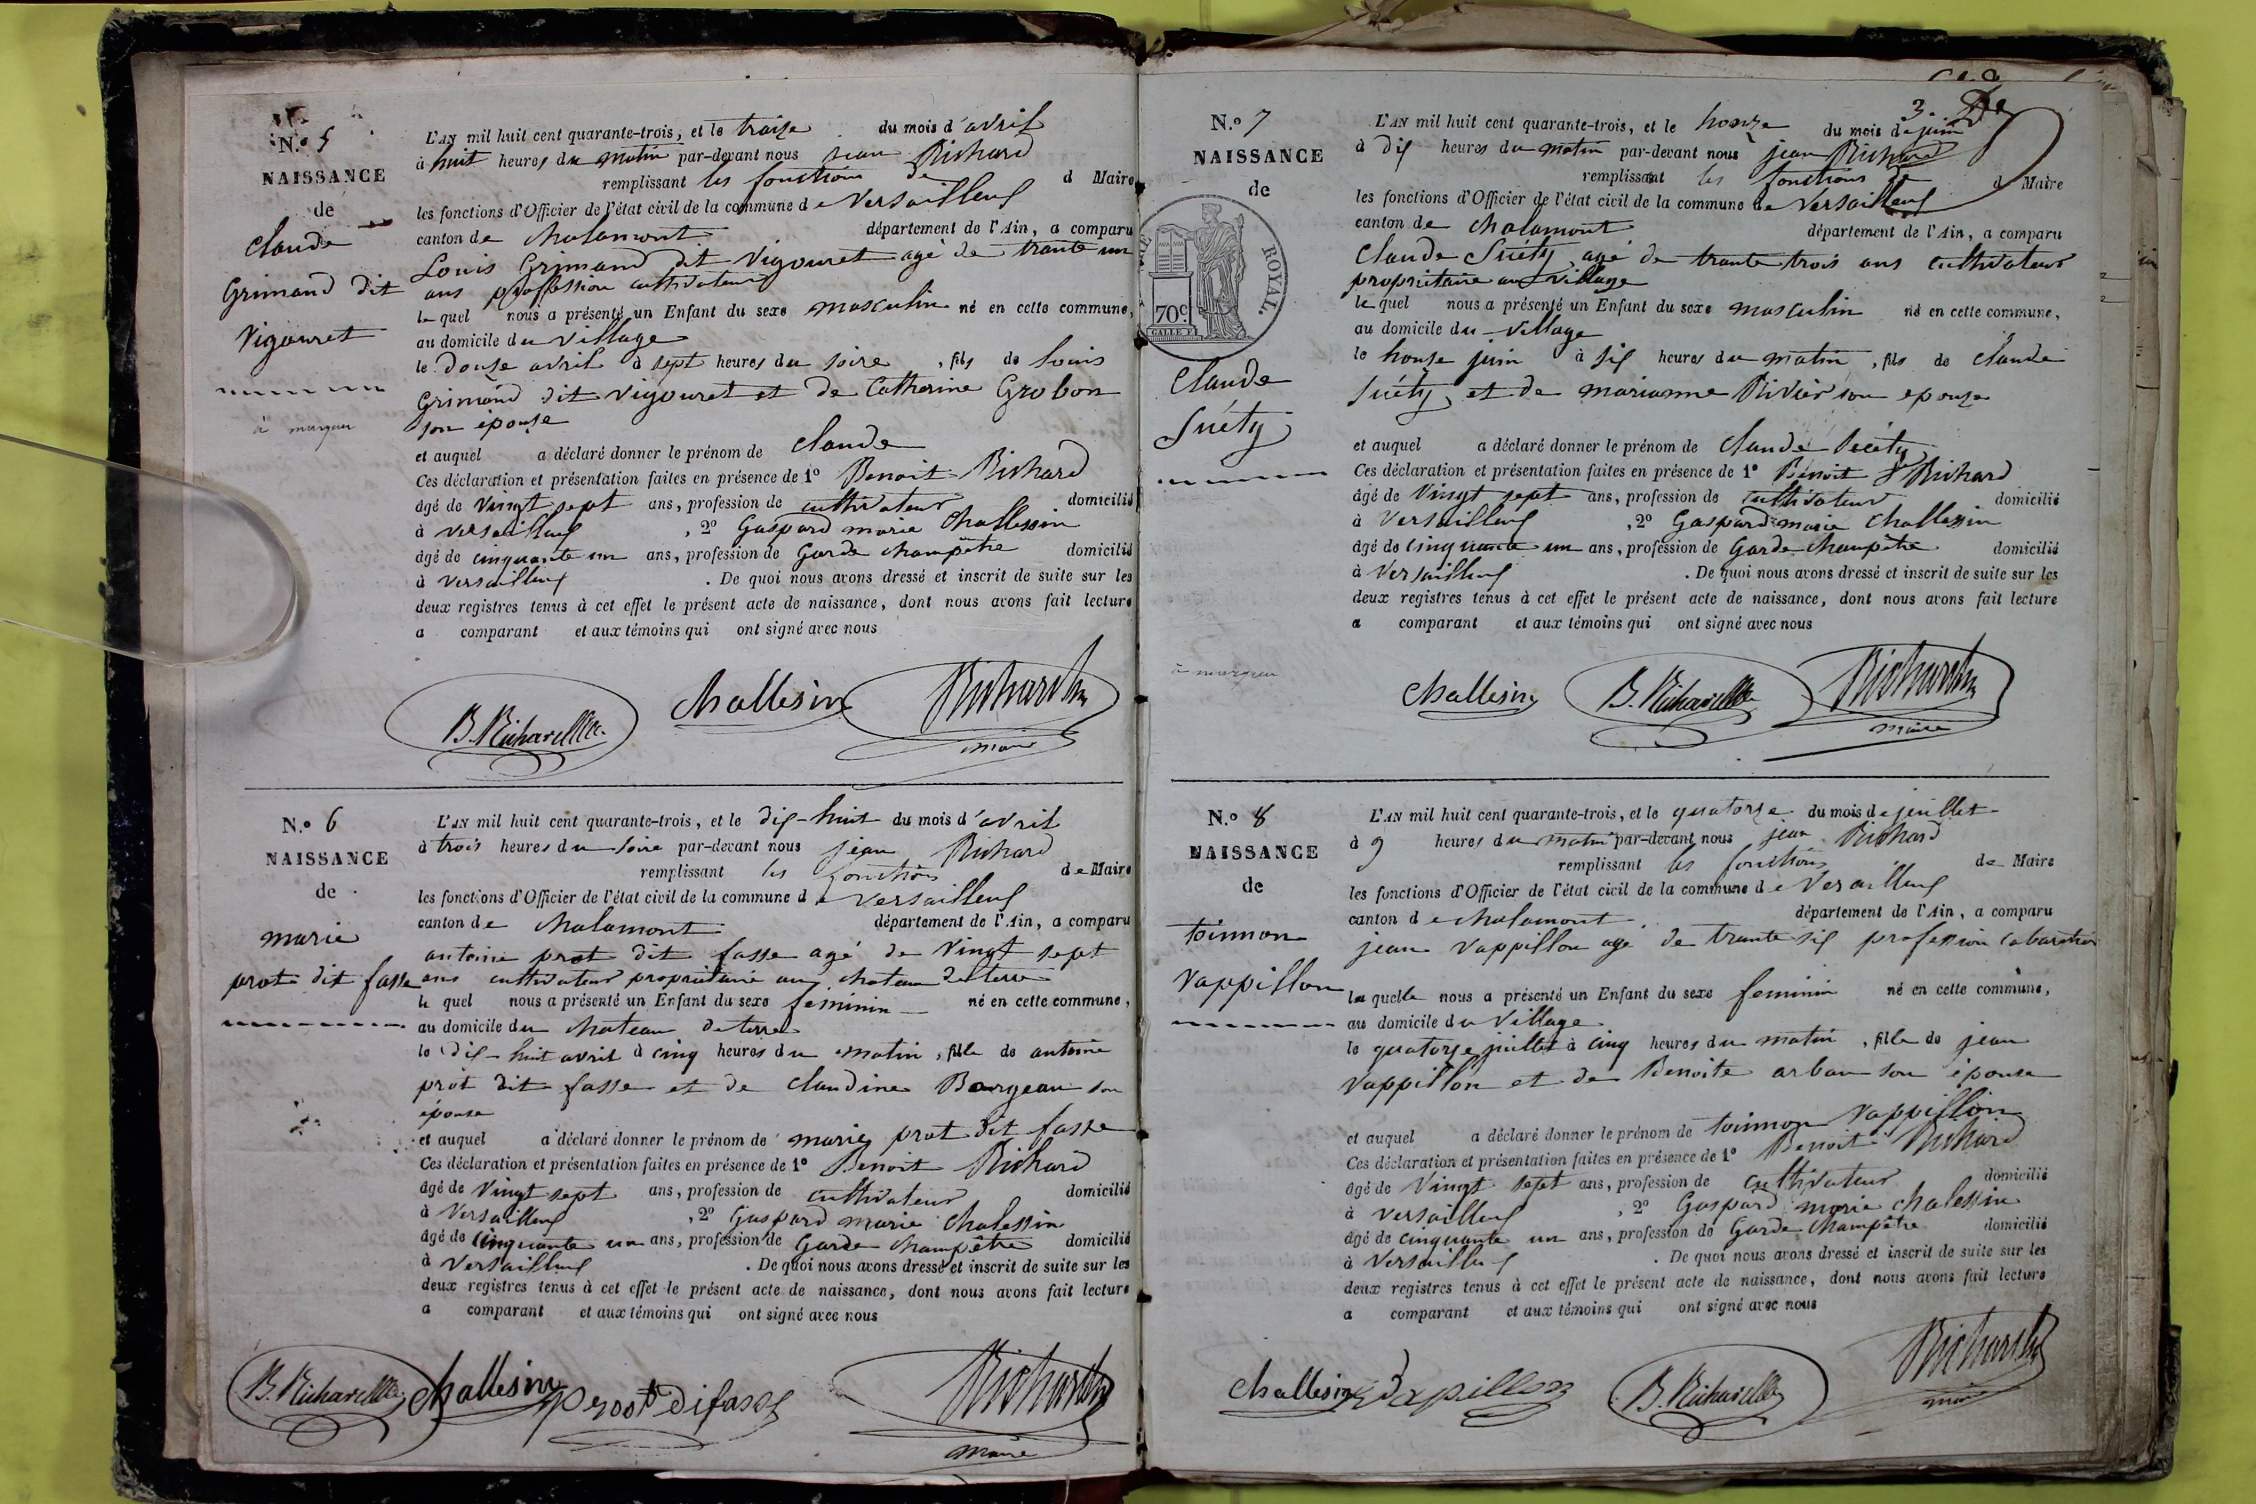 N.o 5
NAISSANCE
de
claude
Grimand dit
Vigouret
à marquer
L'AN mil huit cent quarante-trois, et le traize du mois d'avril
à huit heures du matin par-devant nous jean Richard
remplissant les fonctions de d Maire
les fonctions d'Officier de l'état civil de la commune de Versailleux
canton de chalamont département de l'Ain, a comparu
Louis Grimand dit Vigouret agé de trante un
ans proffession cultivateur
lequel nous a présenté un Enfant du sexe masculin né en cette commune,
au domicile du village
le douze avril à sept heures du soire, fils de louis
Grimand dit vigouret et de Catherine Grobon
son épouse
et auquel a déclaré donner le prénom de claude
Ces déclaration et présentation faites en présence de 1o Benoit Richard
âgé de vingt sept ans, profession de cultivateur domicilié
à versailleux, 2o Gaspard marie Challessin
âgé de cinquante un ans, profession de Garde champêtre domicilié
à versailleux. De quoi nous avons dressé et inscrit de suite sur les
deux registres tenus à cet effet le présent acte de naissance, dont nous avons fait lecture
a comparant et aux témoins qui ont signé avec nous
B. Richard Challesin Richard
maire
N.o 6
NAISSANCE
de
marie
prot dit fasse
L'AN mil huit cent quarante-trois, et le dix-huit du mois d'avril
à trois heures du soire par-devant nous jean Richard
remplissant les fonctions de Maire
les fonctions d'Officier de l'état civil de la commune de Versailleux
canton de chalamont département de l'Ain, a comparu
antoine prot dit fasse agé de Vingt sept
ans cultivateur propriétaire au chateau de terre
lequel nous a présenté un Enfant du sexe feminin né en cette commune,
au domicile du chateau de terre
le dix-huit avril à cinq heures du matin, fille de antoine
prot dit fasse et de claudine Bourgeau son
épouse
et auquel a déclaré donner le prénom de marie prot dit fasse
Ces déclaration et présentation faites en présence de 1o Benoit Richard
âgé de Vingt sept ans, profession de cultivateur domicilié
à Versailleux, 2o Gaspard marie chalessin
âgé de cinquante un ans, profession de Garde champêtre domicilié
à Versailleux. De quoi nous avons dressé et inscrit de suite sur les
deux registres tenus à cet effet le présent acte de naissance, dont nous avons fait lecture
a comparant et aux témoins qui ont signé avec nous
B. Richard Challesin proot Difasse Richard
maire
3.
N.o 7
NAISSANCE
de
ROYAL.
70c
claude
Suéty
à marquer
L'AN mil huit cent quarante-trois, et le honze du mois de juin
à dix heures du matin par-devant nous jean Richard
remplissant les fonctions de d Maire
les fonctions d'Officier de l'état civil de la commune de Versailleux
canton de chalamont département de l'Ain, a comparu
Claude Suéty agé de trante trois ans cultivateur
propriétaire au village
lequel nous a présenté un Enfant du sexe masculin né en cette commune,
au domicile du village
le honze juin à six heures du matin, fils de claude
Suéty et de marianne Rivier son epouze
et auquel a déclaré donner le prénom de claude Suéty
Ces déclaration et présentation faites en présence de 1o Benoit Richard
âgé de Vingt sept ans, profession de cultivateur domicilié
à Versailleux, 2o Gaspard marie Challessin
âgé de cinquante un ans, profession de Garde champêtre domicilié
à Versailleux. De quoi nous avons dressé et inscrit de suite sur les
deux registres tenus à cet effet le présent acte de naissance, dont nous avons fait lecture
a comparant et aux témoins qui ont signé avec nous
Challesin B. Richard Richard
maire
N.o 8
NAISSANCE
de
toinnon
vappillon
L'AN mil huit cent quarante-trois, et le quatorze du mois de juillet
à 9 heures du matin par-devant nous jean Richard
remplissant les fonctions de Maire
les fonctions d'Officier de l'état civil de la commune de Versailleux
canton de chalamont département de l'Ain, a comparu
jean vappillon agé de trante six profession cabaretier
laquelle nous a présenté un Enfant du sexe feminin né en cette commune,
au domicile du village
le quatorze juillet à cinq heures du matin, fille de jean
vappillon et de Benoite arban son épouse
et auquel a déclaré donner le prénom de toinnon vappillon
Ces déclaration et présentation faites en présence de 1o Benoit Richard
âgé de Vingt sept ans, profession de cultivateur domicilié
à versailleux, 2o Gaspard marie chalessin
âgé de cinquante un ans, profession de Garde champêtre domicilié
à Versailleux. De quoi nous avons dressé et inscrit de suite sur les
deux registres tenus à cet effet le présent acte de naissance, dont nous avons fait lecture
a comparant et aux témoins qui ont signé avec nous
Challesin Vapillon B. Richard Richard
maire